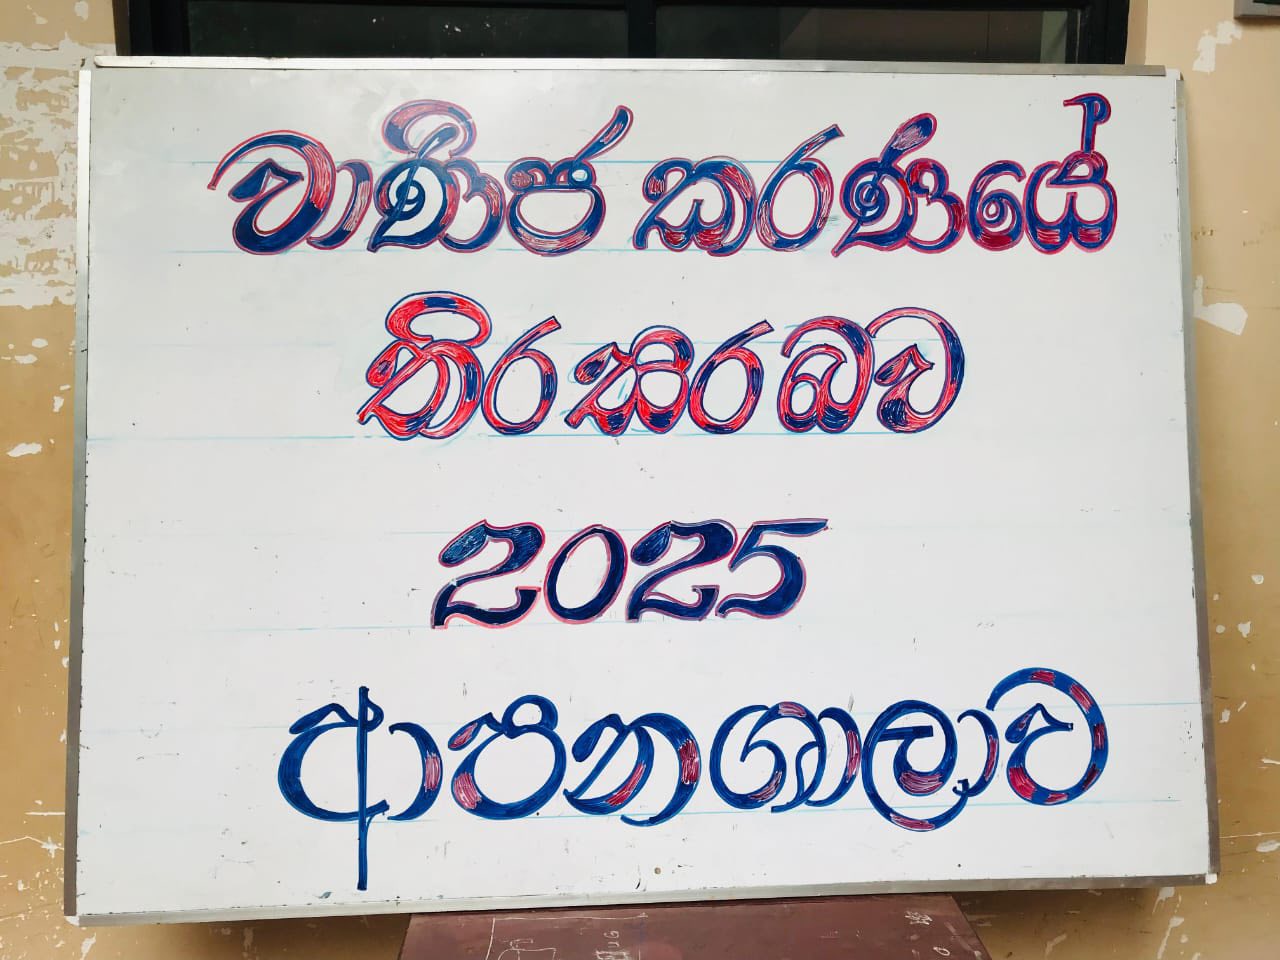 වාණිජ කරණයේ
තිරසරබව
2025
ආපනශාලාව